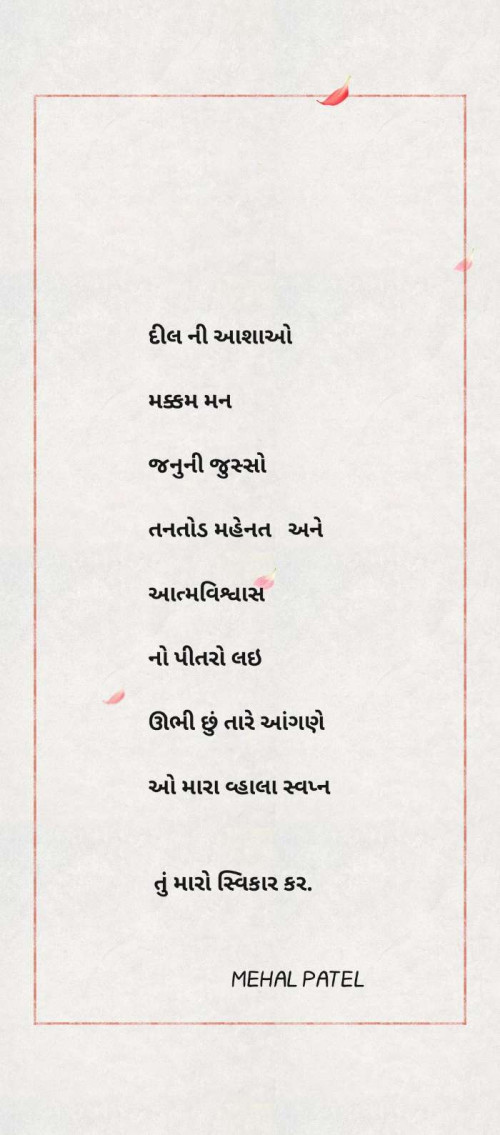 દીલ ની આશાઓ
મક્કમ મન
જનુની જુસ્સો
તનતોડ મહેનત અને
આત્મવિશ્વાસ
નો પીતરો લઇ
ઊભી છું તારે આંગણે
ઓ મારા વ્હાલા સ્વપ્ન
તું મારો સ્વિકાર કર.
MEHAL PATEL